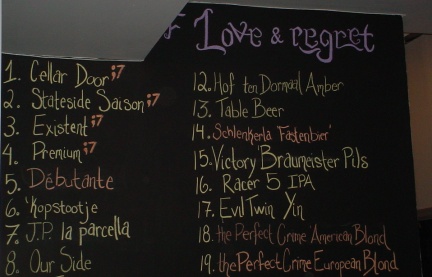 of Love & regret
1. Cellar Door ;7
2. Stateside Saison ;7
3. Existent ;7
4. Premium ;7
5. Débutante
6. 'Kopstootje
7. J.P. la parcella
8. Our Side
12. Hof ten Dormaal Amber
13. Table Beer
14. Schlenkerla 'Fastenbier'
15. Victory 'Braumeister Pils
16. Racer 5 IPA
17. Evil Twin Yin
18. the Perfect Crime 'American Blond
19. the Perfect Crime European Blond